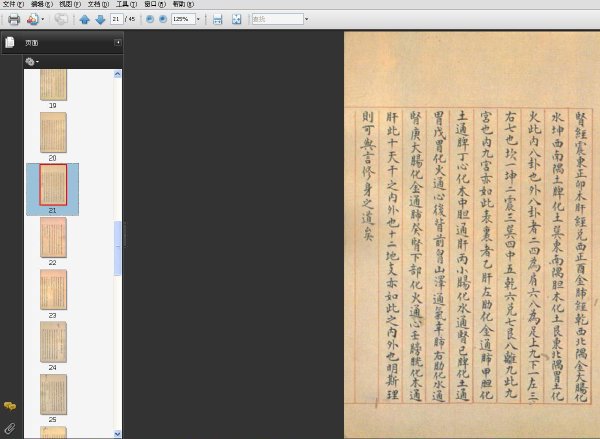 文件(F) 编辑(E) 视图(V) 文档(D) 工具(T) 窗口(W) 帮助(H)
21 / 45
125%
查找
页面
19
20
21
22
23
24
25
腎經震東正卯木肝經兌西正酉金肺經乾西北隅金大腸化
水坤西南隅土脾化土巽東南隅胆木化土艮東北隅胃土化
火此內八卦也外八卦者二四為肩六八為足上九下一左三
右七也坎一坤二震三巽四中五乾六兌七艮八離九此九
宮也內九宮亦如此表裏者乙肝左肋化金通肺甲胆化
土通脾丁心化木中胆通肝丙小腸化水通腎己脾化土通
胃戊胃化火通心後背前胷山澤通氣辛肺右肋化水通
腎庚大腸化金通肺癸腎下部化火通心壬膀胱化木通
肝此十天干之內外也十二地支亦如此之內外也明斯理
則可與言修身之道矣